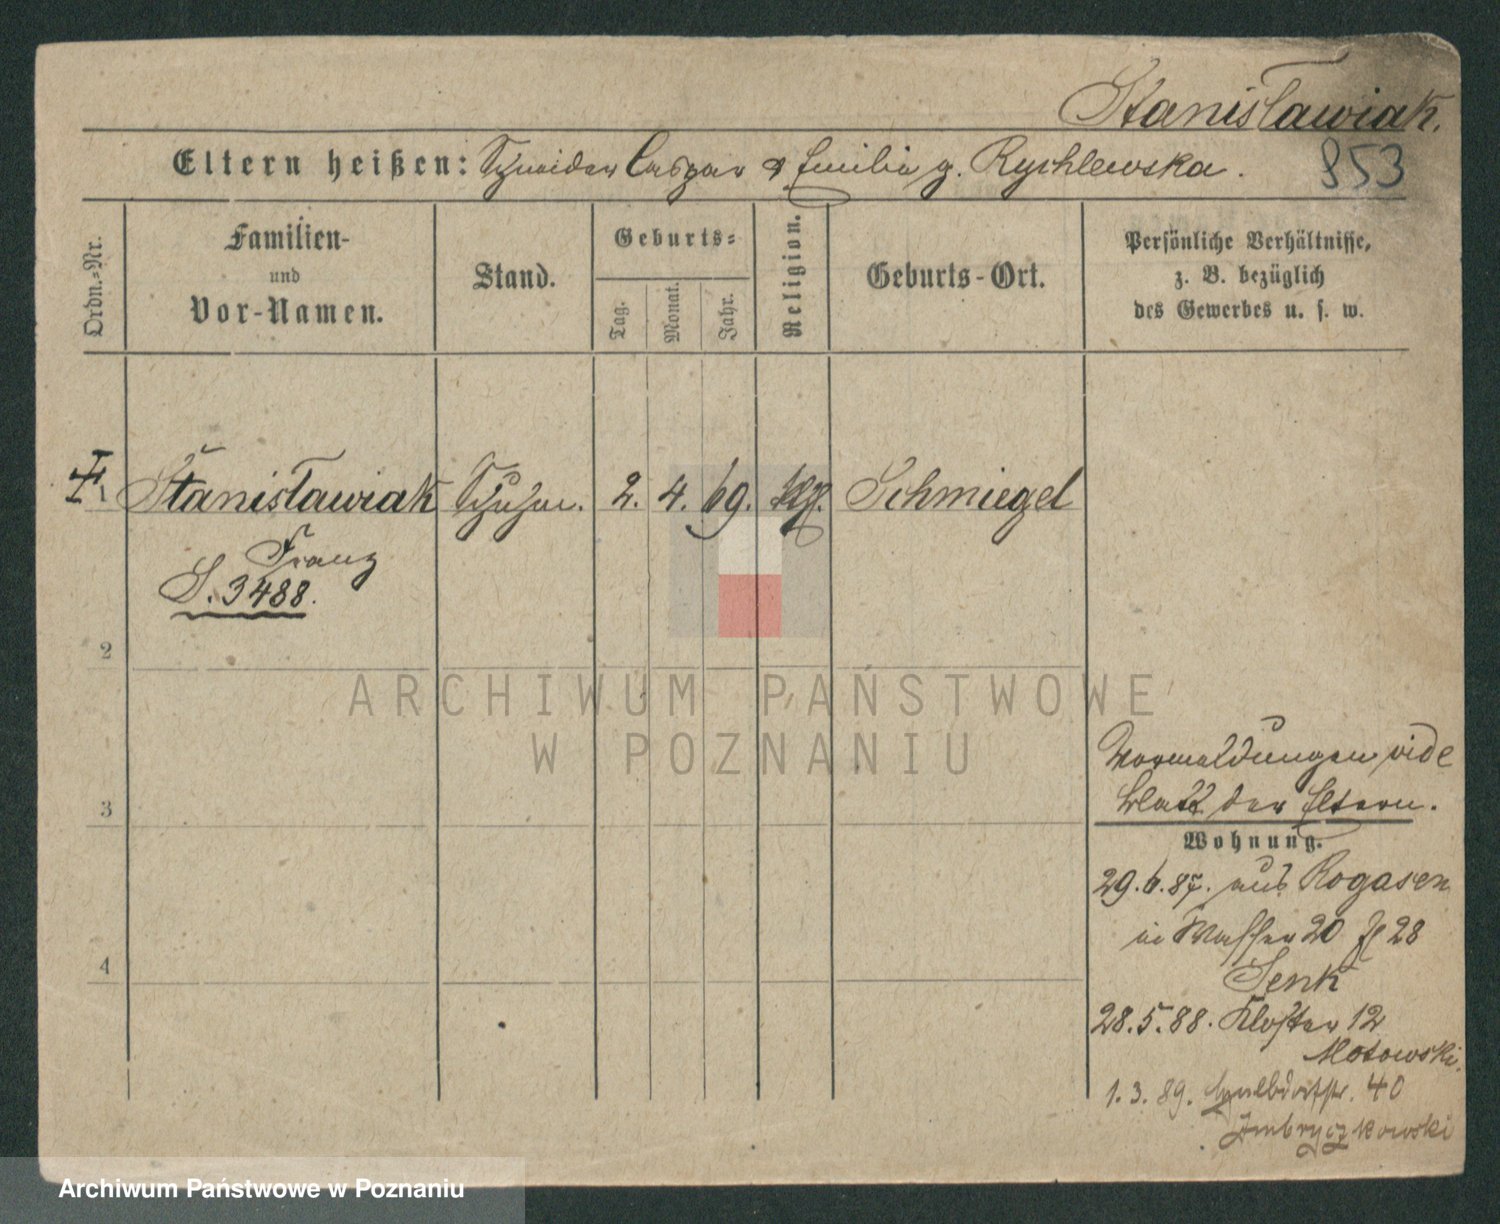 Stanisławiak.
853
Eltern heißen: Schneider Caspar & Emilie g. Rychlewska.
Ordn.=Nr.
Familien-
und
Vor-Namen.
Stand.
Geburts=
Tag.
Monat.
Jahr.
Religion.
Geburts-Ort.
Persönliche Verhältnisse,
z. B. bezüglich
des Gewerbes u. s. w.
1 Stanisławiak Schuhm. 2. 4. 69. kth. Schmiegel
Franz
S. 3488.
2
3
4
Vormeldungen vide
Blatt der Eltern.
Wohnung.
29.6.87. aus Rogasen
in Wasser 20 28
Senk
28.5.88. Kloster 12
Motowski.
1.3.89. 40
Imbryczkowski
ARCHIWUM PAŃSTWOWE
W POZNANIU
Archiwum Państwowe w Poznaniu